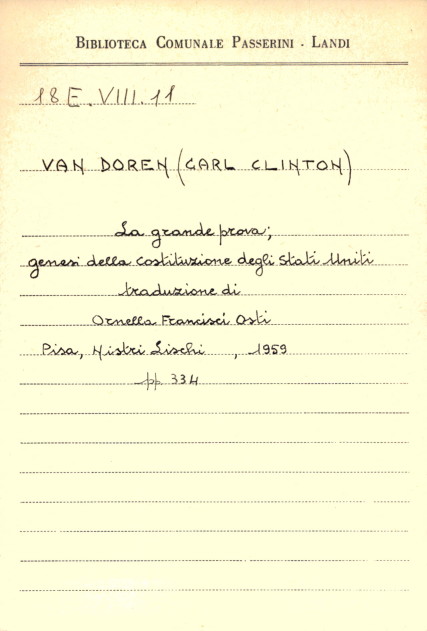 BIBLIOTECA COMUNALE PASSERINI - LANDI
18 E. VIII. 11
VAN DOREN (CARL CLINTON)
La grande prova;
genesi della Costituzione degli Stati Uniti
traduzione di
Ornella Francisci Osti
Pisa, Nistri Lischi , 1959
pp. 334